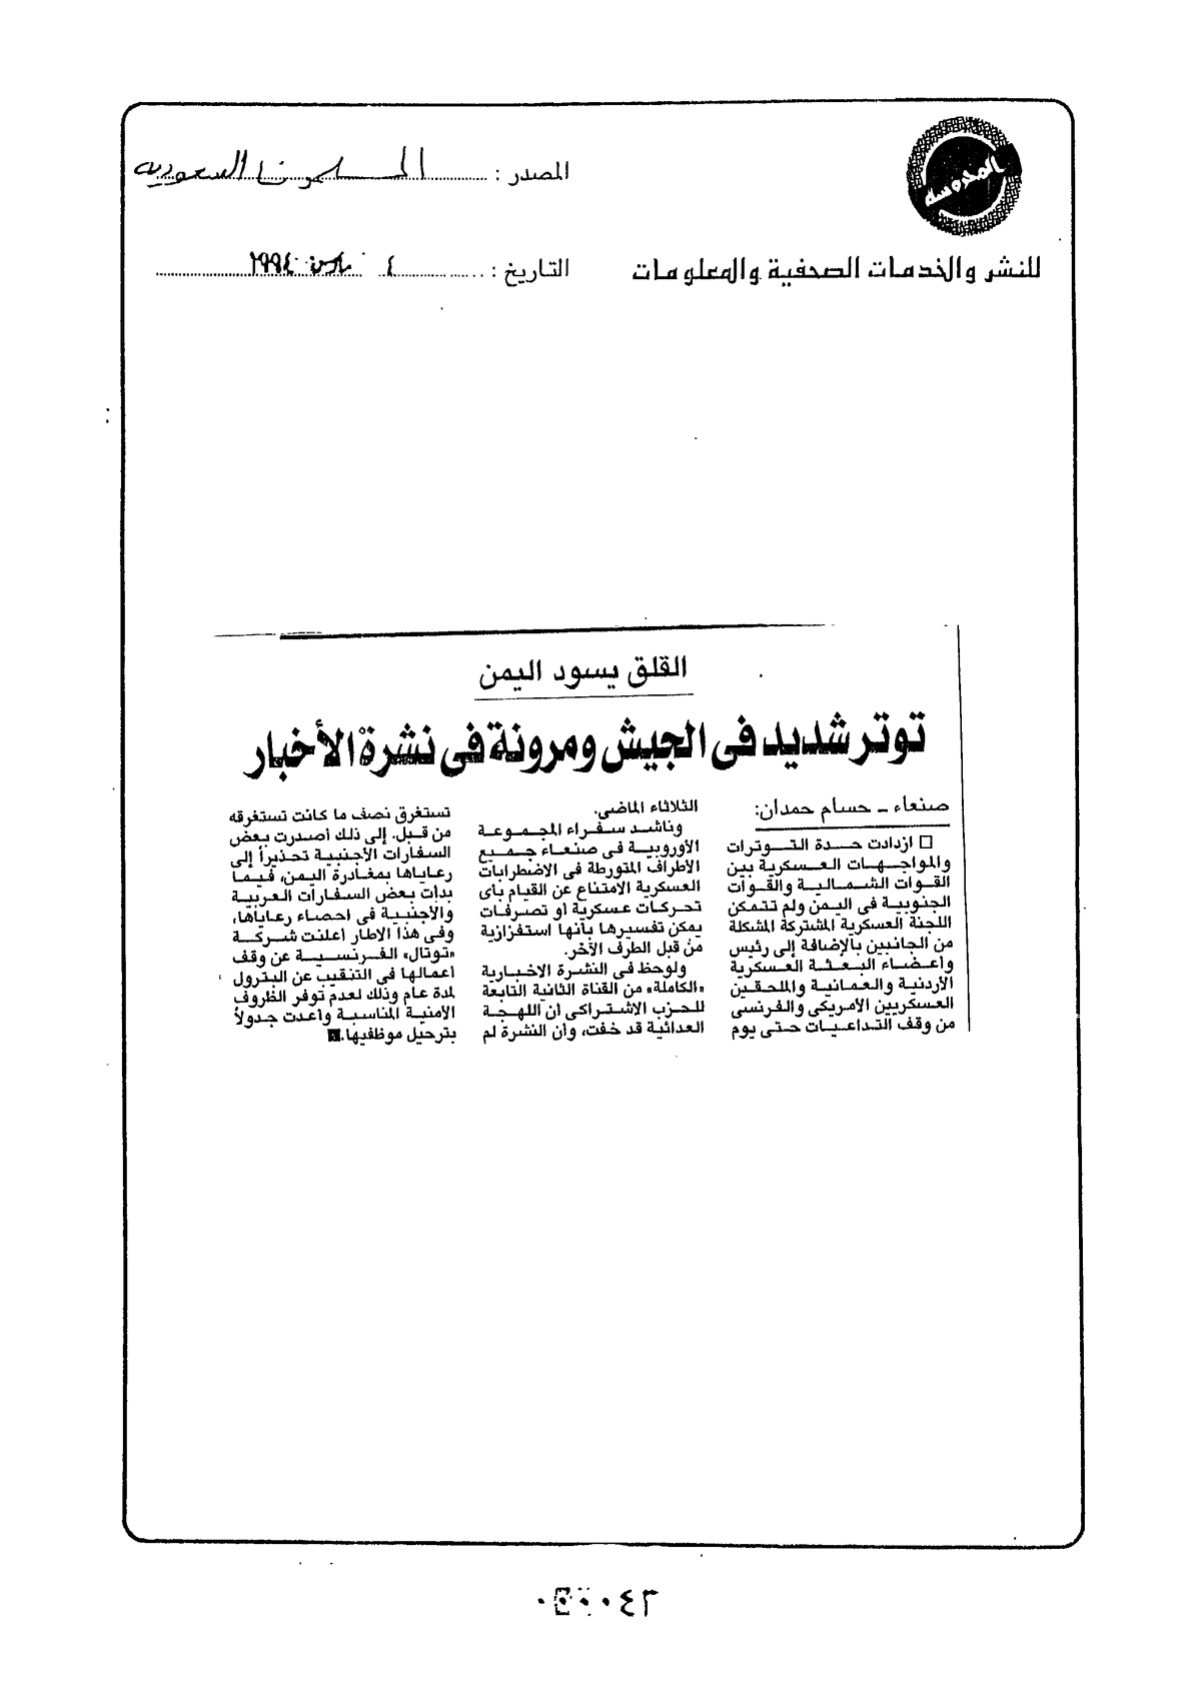 المحروسة
المصدر : المسلمون السعودية
للنشر والخدمات الصحفية والمعلومات
التاريخ : ٤ مارس ١٩٩٤
القلق يسود اليمن
توتر شديد فى الجيش ومرونة فى نشرة الأخبار
صنعاء ـ حسام حمدان:
□ ازدادت حدة التوترات
والمواجهات العسكرية بين
القوات الشمالية والقوات
الجنوبية فى اليمن ولم تتمكن
اللجنة العسكرية المشتركة المشكلة
من الجانبين بالإضافة إلى رئيس
وأعضاء البعثة العسكرية
الأردنية والعمانية والملحقين
العسكريين الأمريكى والفرنسى
من وقف التداعيات حتى يوم
الثلاثاء الماضى.
وناشد سفراء المجموعة
الأوروبية فى صنعاء جميع
الأطراف المتورطة فى الاضطرابات
العسكرية الامتناع عن القيام بأى
تحركات عسكرية أو تصرفات
يمكن تفسيرها بأنها استفزازية
من قبل الطرف الآخر.
ولوحظ فى النشرة الاخبارية
«الكاملة» من القناة الثانية التابعة
للحزب الاشتراكى أن اللهجة
العدائية قد خفت، وأن النشرة لم
تستغرق نصف ما كانت تستغرقه
من قبل. إلى ذلك أصدرت بعض
السفارات الأجنبية تحذيراً إلى
رعاياها بمغادرة اليمن، فيما
بدأت بعض السفارات العربية
والأجنبية فى احصاء رعاياها،
وفى هذا الاطار أعلنت شركة
«توتال» الفرنسية عن وقف
أعمالها فى التنقيب عن البترول
لمدة عام وذلك لعدم توفر الظروف
الأمنية المناسبة وأعدت جدولاً
بترحيل موظفيها.